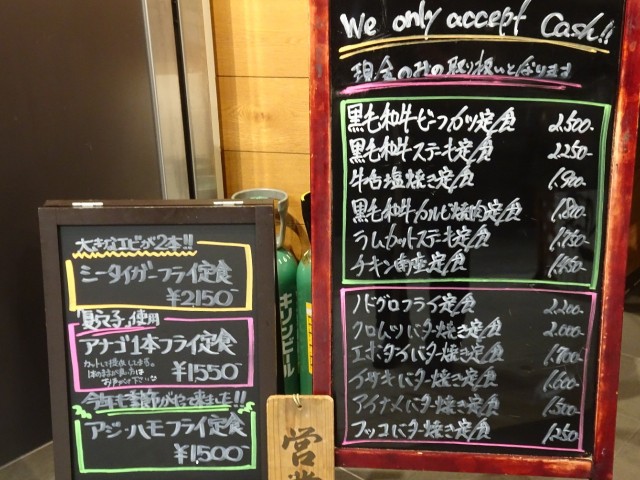 We only accept Cash!!
現金のみの取り扱いとなります
黒毛和牛ビーフカツ定食 2,500-
黒毛和牛ステーキ定食 2,250-
牛舌塩焼き定食 1,900-
黒毛和牛カルビ焼肉定食 1,800-
ラムカットステーキ定食 1,750-
チキン南蛮定食 1,450-
ノドグロフライ定食 2,200-
クロムツバター焼き定食 2,000-
エボダイバター焼き定食
イサキバター焼き定食 1,600-
アイナメバター焼き定食 1,500-
フッコバター焼き定食 1,250-
大きなエビが2本!!
シータイガーフライ定食
¥2150-
"夏穴子"使用
アナゴ1本フライ定食
¥1550-
今年も季節がやって来ました!!
アジ・ハモフライ定食
¥1,500-
キリンビール
営業